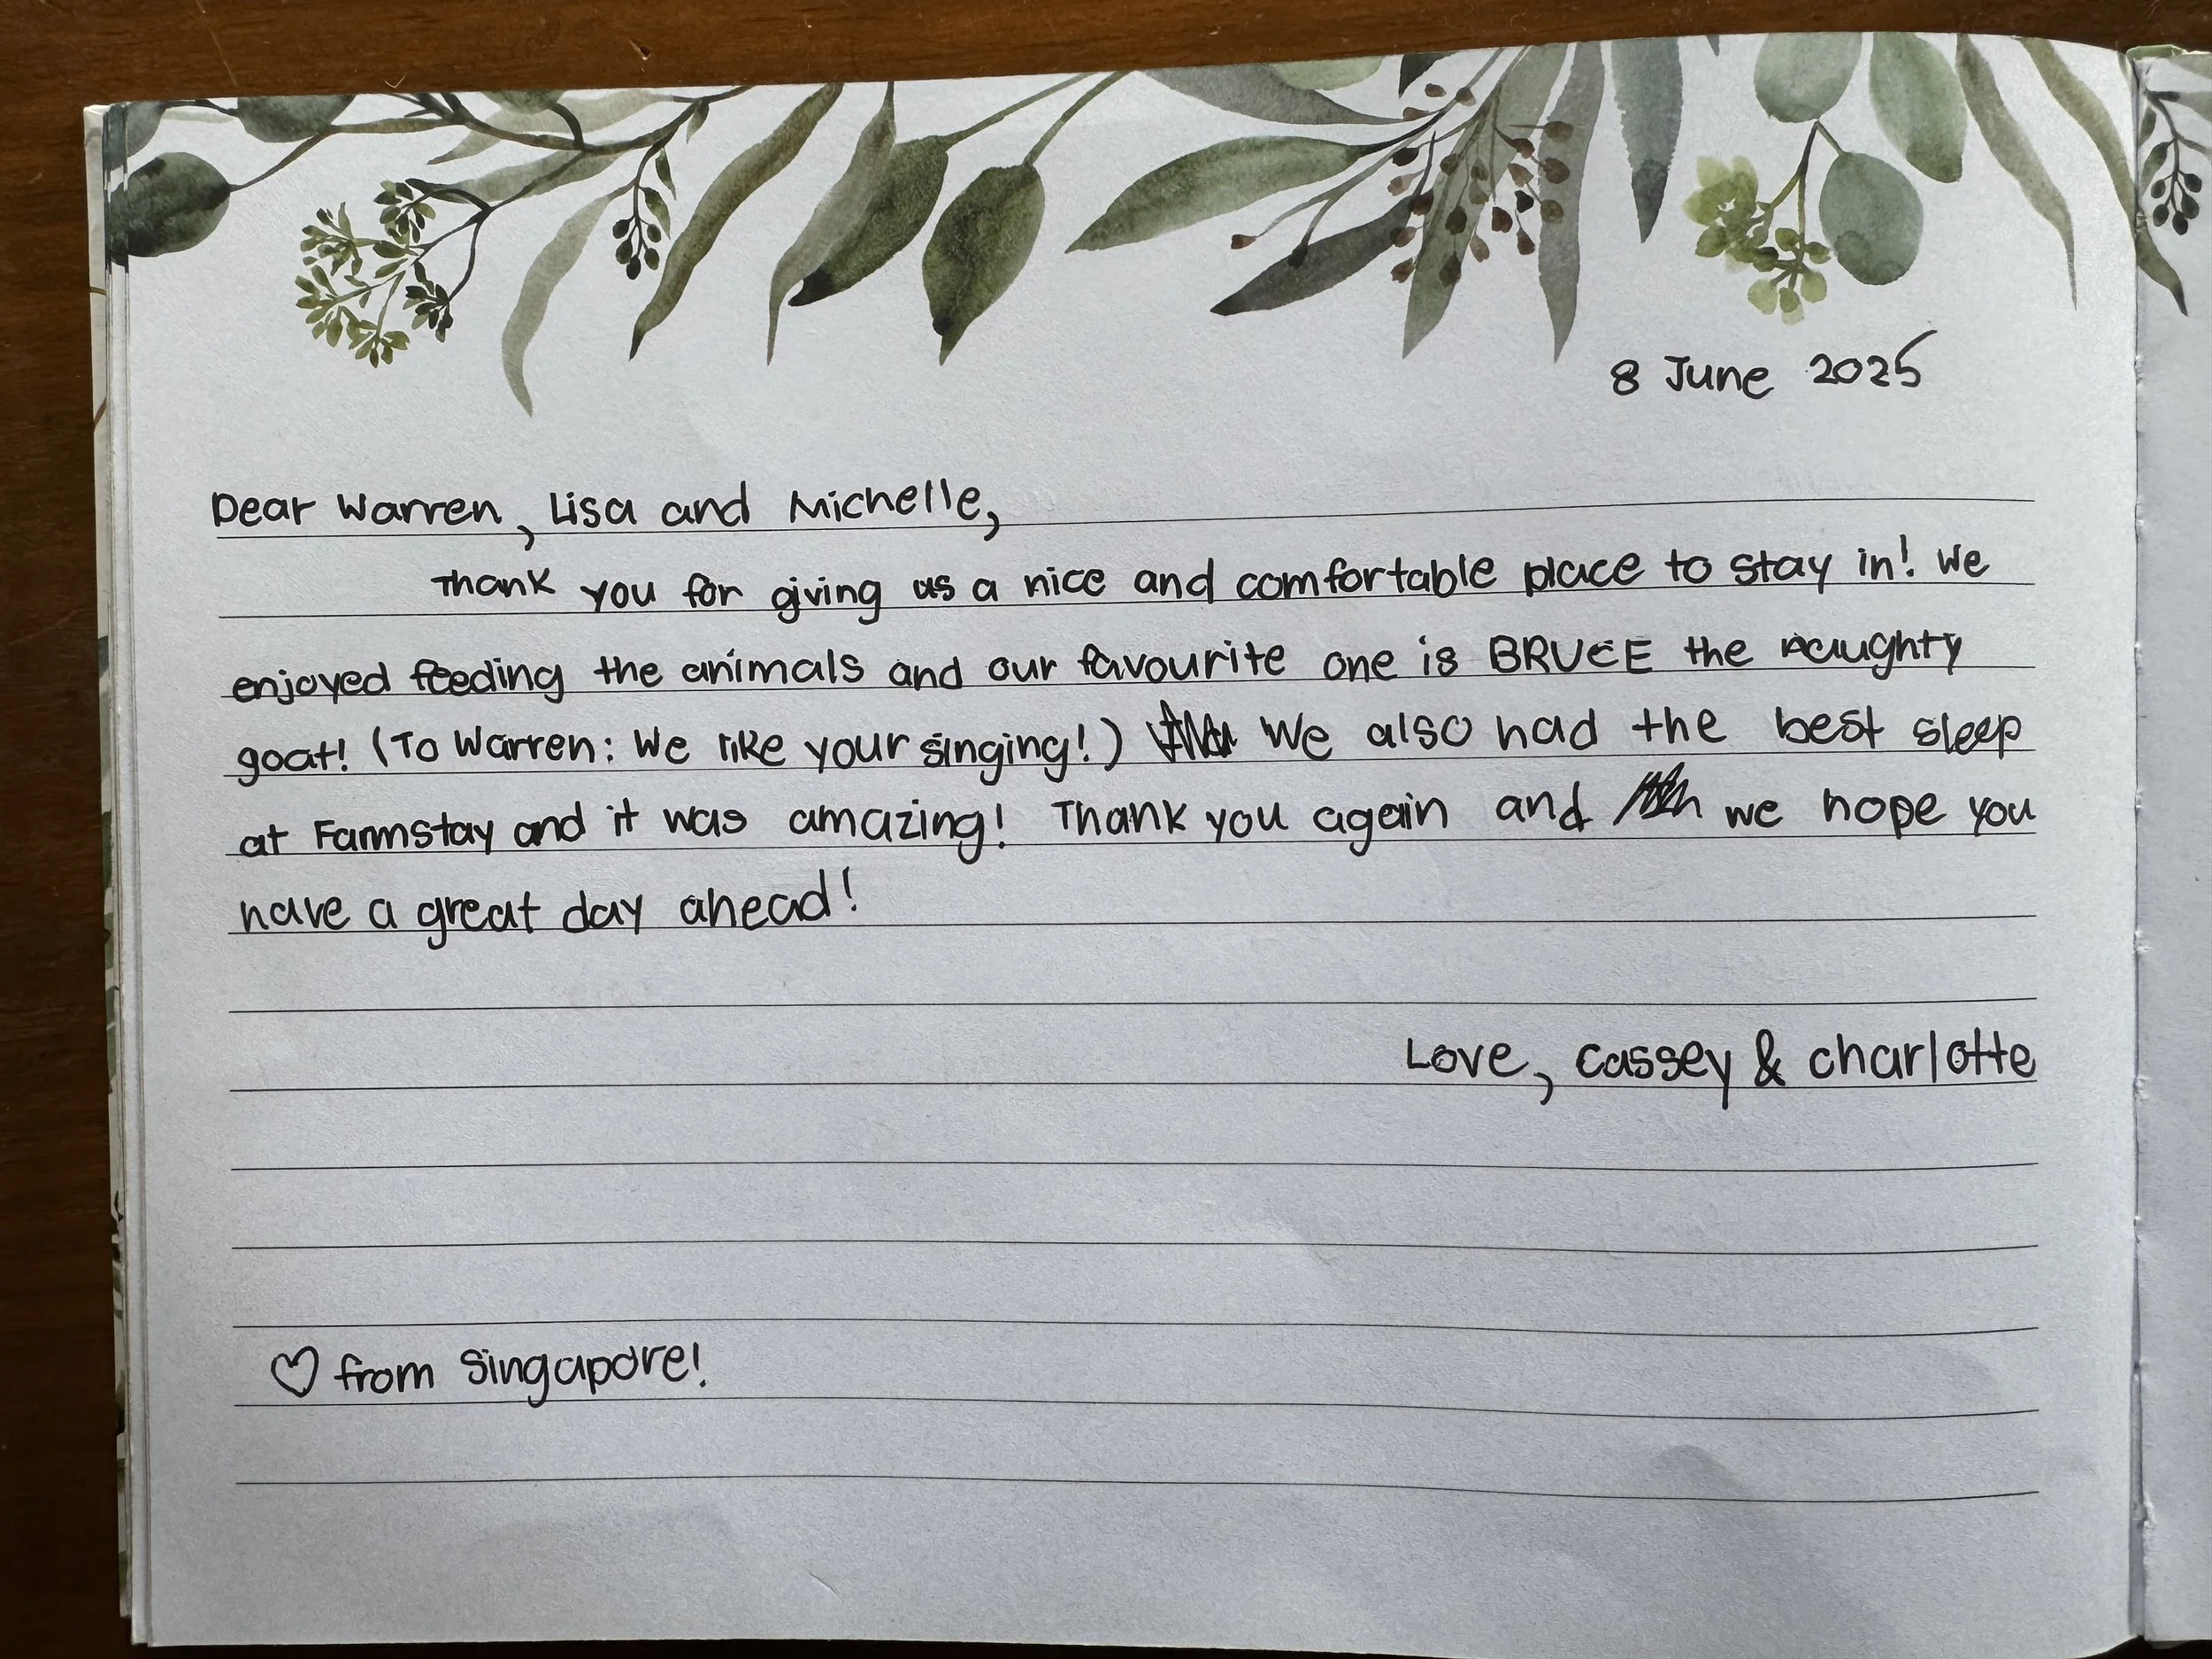 8 June 2025
Dear Warren, Lisa and Michelle,
Thank you for giving us a nice and comfortable place to stay in! We
enjoyed feeding the animals and our favourite one is BRUCE the naughty
goat! (To Warren: We like your singing!) We also had the best sleep
at Farmstay and it was amazing! Thank you again and we hope you
have a great day ahead!
Love, Cassey & Charlotte
♡ from Singapore!